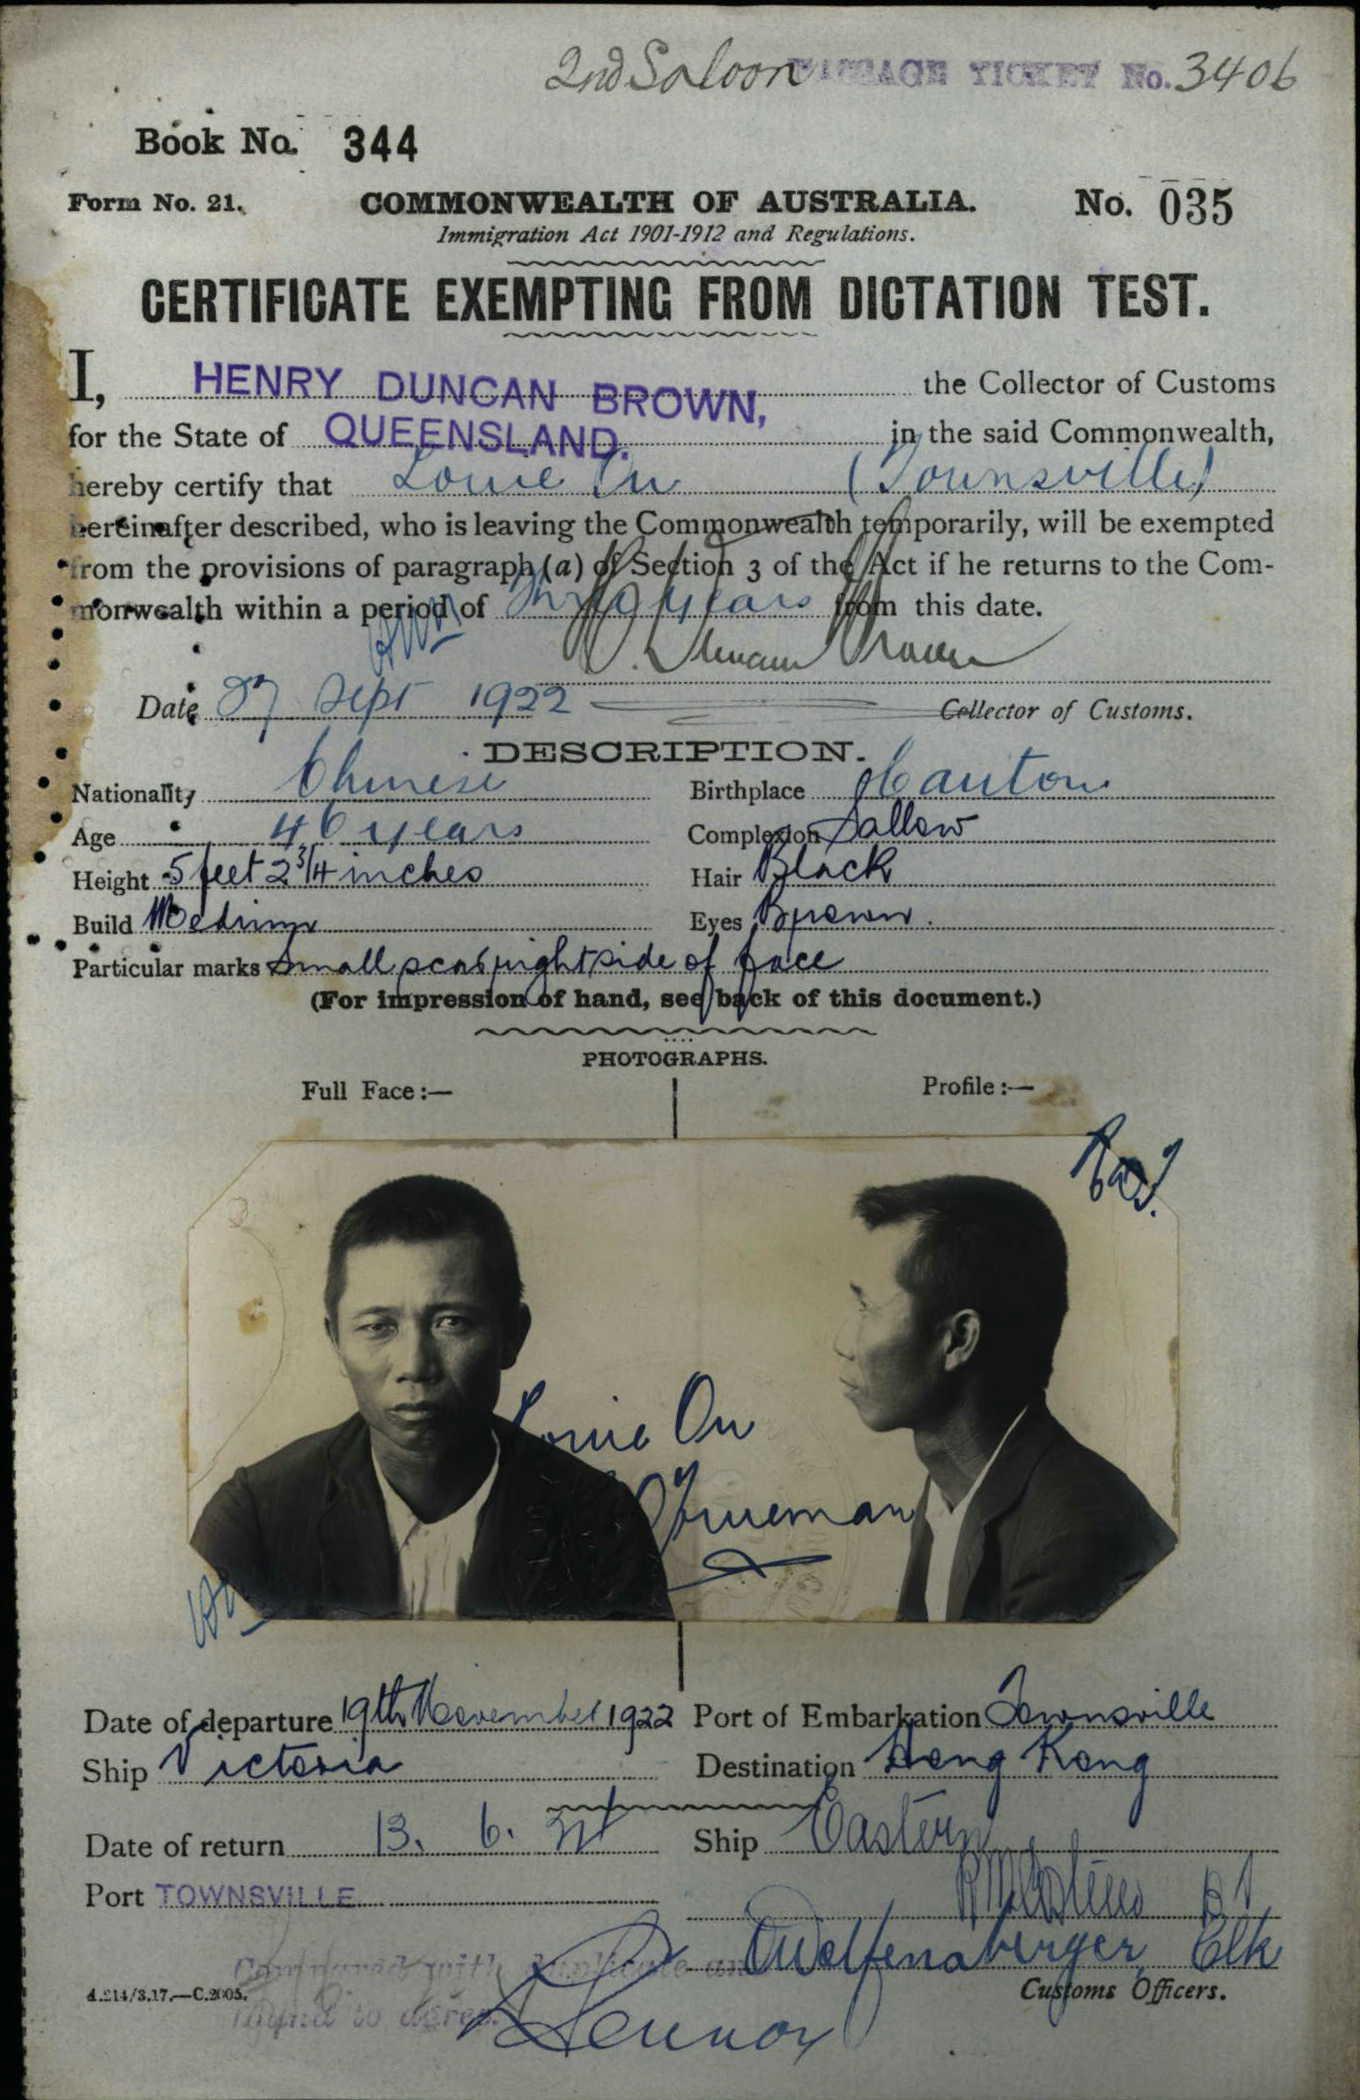 2nd Saloon PASSAGE TICKET No. 3406
Book No. 344
Form No. 21. COMMONWEALTH OF AUSTRALIA. No. 035
Immigration Act 1901-1912 and Regulations.
CERTIFICATE EXEMPTING FROM DICTATION TEST.
I, HENRY DUNCAN BROWN, the Collector of Customs
for the State of QUEENSLAND. in the said Commonwealth,
hereby certify that Louie On (Townsville)
hereinafter described, who is leaving the Commonwealth temporarily, will be exempted
from the provisions of paragraph (a) of Section 3 of the Act if he returns to the Com-
monwealth within a period of years from this date.
H. Duncan Brown
Date 27 Sept 1922 Collector of Customs.
DESCRIPTION.
Nationality Chinese Birthplace Canton
Age 46 years Complexion Sallow
Height 5 feet 2 3/4 inches Hair Black
Build Medium Eyes Brown.
Particular marks Small scar right side of face
(For impression of hand, see back of this document.)
PHOTOGRAPHS.
Full Face:— Profile:—
Louie On
Trueman
Date of departure 19th November 1922 Port of Embarkation Townsville
Ship Victoria Destination Hong Kong
Date of return 13. 6. Ship Eastern
Port TOWNSVILLE
Wolfensberger, Clk
Compared with duplicate and
found to agree.
4.214/3.17.—C.2005. Customs Officers.
Lennox